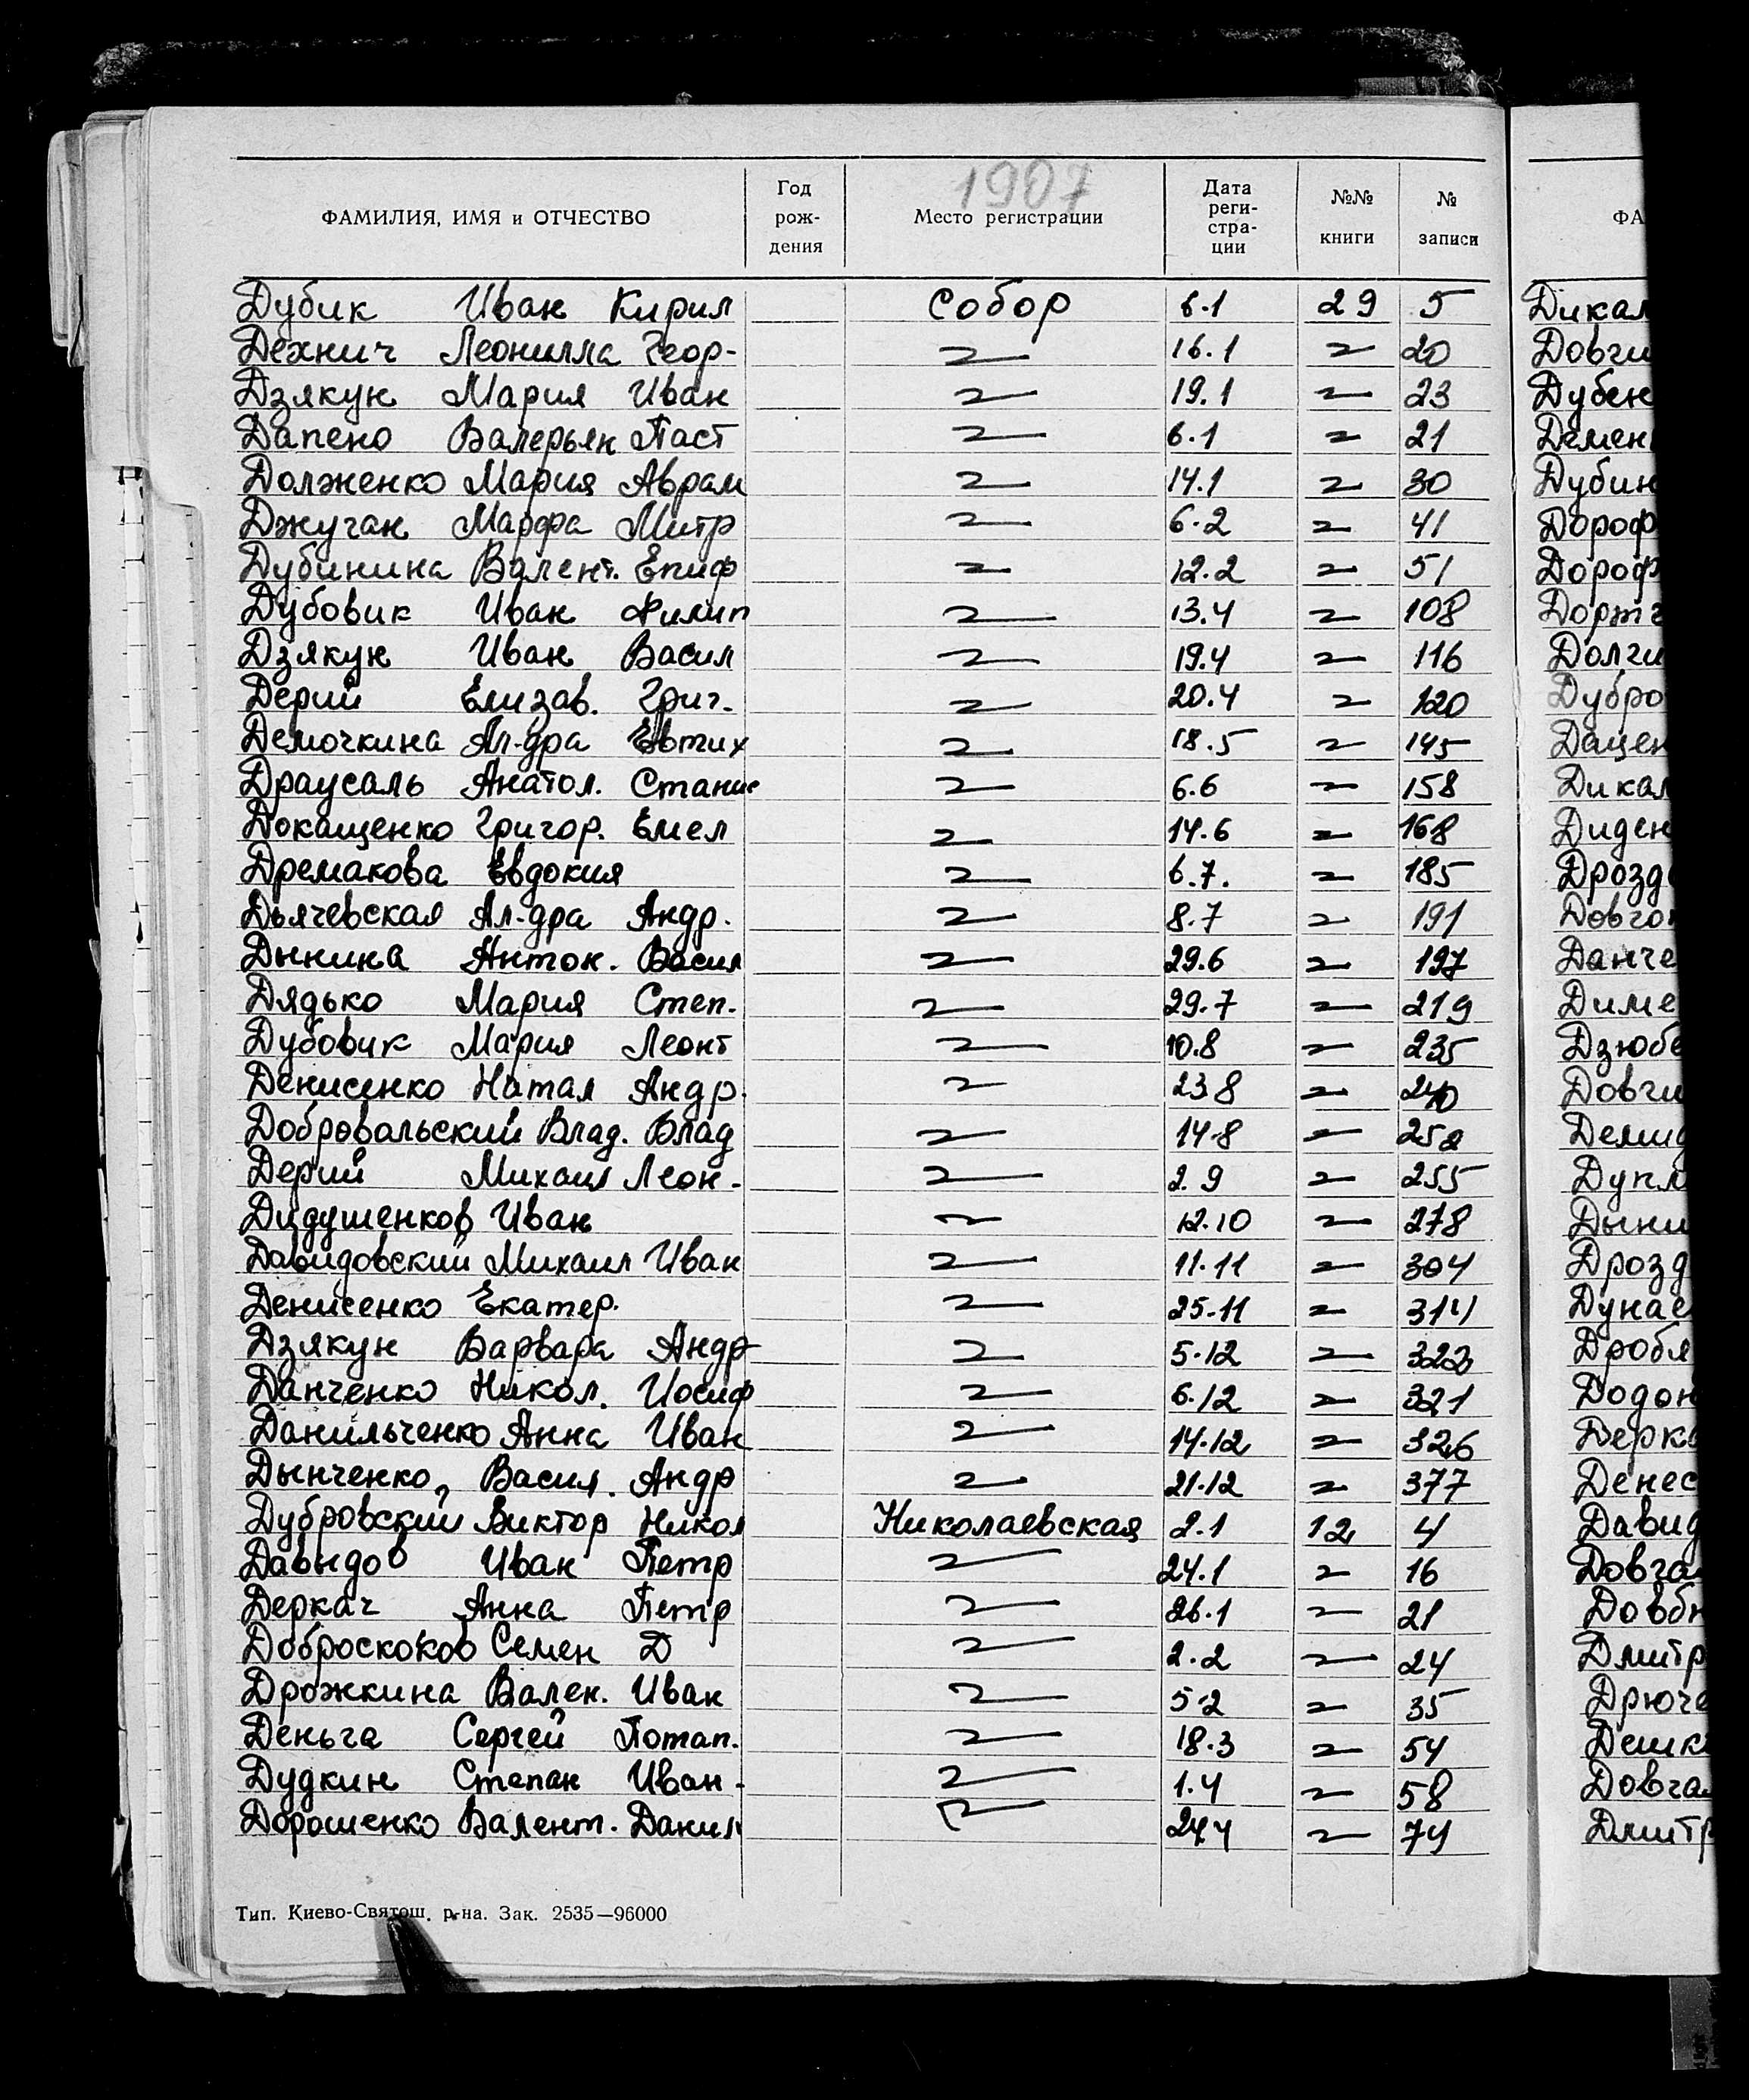 1907
ФАМИЛИЯ, ИМЯ и ОТЧЕСТВО Год рождения Место регистрации Дата регистрации №№ книги № записи
Дубик Иван Кирил Собор 6.1 29 5
Дехнич Леонилла Геор- 16.1 20
Дзякун Мария Иван 19.1 23
Дапено Валерьян Паст 6.1 21
Долженко Мария Аврам 14.1 30
Джучан Марфа Митр 6.2 41
Дубинина Валент. Епиф 12.2 51
Дубовик Иван Филип 13.4 108
Дзякун Иван Васил 19.4 116
Дерий Елизав. Григ. 20.4 120
Демочкина Ал-дра Евтих 18.5 145
Драусаль Анатол. Станис 6.6 158
Докащенко Григор. Емел 14.6 168
Дремакова Евдокия 6.7. 185
Дьячевская Ал-дра Андр. 8.7 191
Дынина Антон. Васил 29.6 197
Дядько Мария Степ. 29.7 219
Дубовик Мария Леонт 10.8 235
Денисенко Натал Андр. 23 8 240
Добровольский Влад. Влад 14.8 252
Дерий Михаил Леон. 2.9 255
Дидушенков Иван 12.10 278
Давидовский Михаил Иван 11.11 304
Денисенко Екатер. 25.11 314
Дзякун Варвара Андр 5.12 322
Данченко Никол. Иосиф 6.12 321
Данильченко Анна Иван 14.12 326
Дынченко, Васил. Андр 21.12 377
Дубровский Виктор Никол Николаевская 2.1 12 4
Давыдов Иван Петр 24.1 16
Деркач Анна Петр 26.1 21
Доброскоков Семен Д 2.2 24
Дрожкина Вален. Иван 5.2 35
Деньга Сергей Потап. 18.3 54
Дудкин Степан Иван. 1.4 58
Дорошенко Валент. Данил 24.4 74
Тип. Киево-Святош. р-на. Зак. 2535—96000
ФА
Дикал
Довги
Дубен
Демен
Дубин
Дороф
Дороф
Долги
Дубро
Дацен
Дикал
Диден
Дрозд
Довго
Данче
Диме
Дзюбе
Довги
Демид
Дупл
Дыни
Дрозд
Дунае
Дробя
Додон
Дерк
Денес
Давид
Довга
Довбн
Дмитр
Дрюче
Дешк
Довга
Дмитр